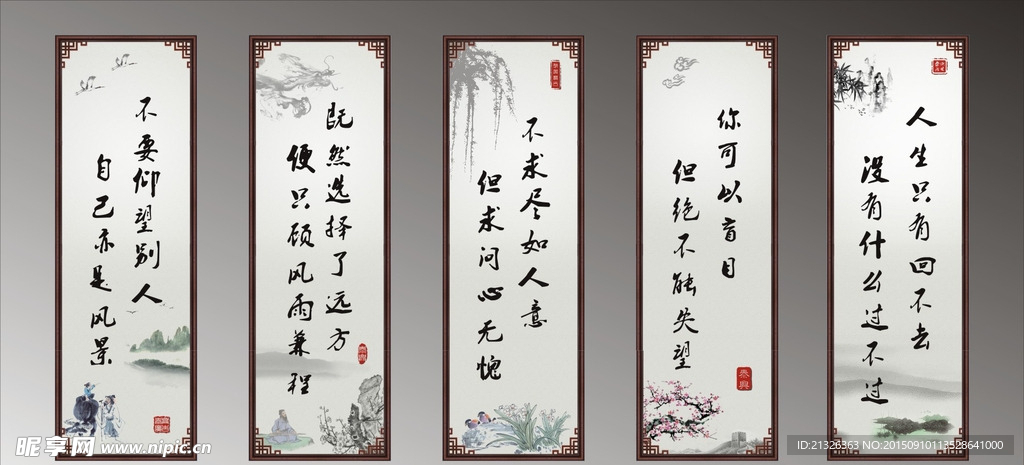 不要仰望别人
自己亦是风景
既然选择了远方
便只顾风雨兼程
不求尽如人意
但求问心无愧
你可以盲目
但绝不能失望
人生只有回不去
没有什么过不过
昵享网 www.nipic.cn
ID:21326363 NO:20150910113528641000